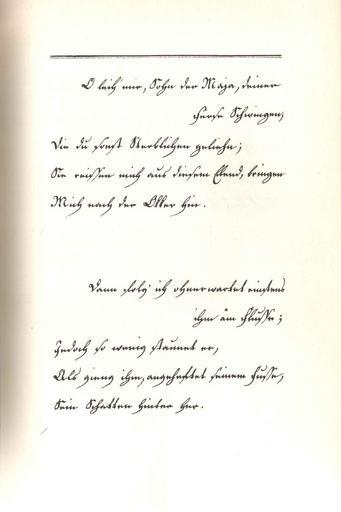 O leih' mir, Sohn der Maja, deiner
Ferse Schwingen,
Die du sonst Sterblichen geliehn;
Sie reissen mich aus diesem Elend, bringen
Mich nach der Okker hin.
Dann folg' ich ohnerwartet einstens
ihm am Flusse;
Jedoch so wenig staunet er,
Als gieng ihm, angeheftet seinem Fusse,
Sein Schatten hinter her.